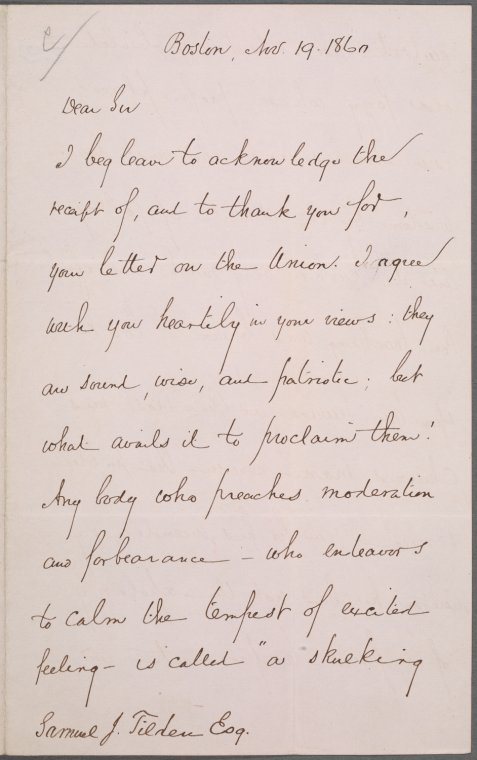 Boston, Nov. 19. 1860
Dear Sir
I beg leave to acknowledge the
receipt of, and to thank you for,
your letter on the Union. I agree
with you heartily in your views: they
are sound, wise, and patriotic; but
what avails it to proclaim them!
Any body who preaches moderation
and forbearance – who endeavors
to calm the tempest of excited
feeling – is called "a skulking
Samuel J. Tilden Esq.